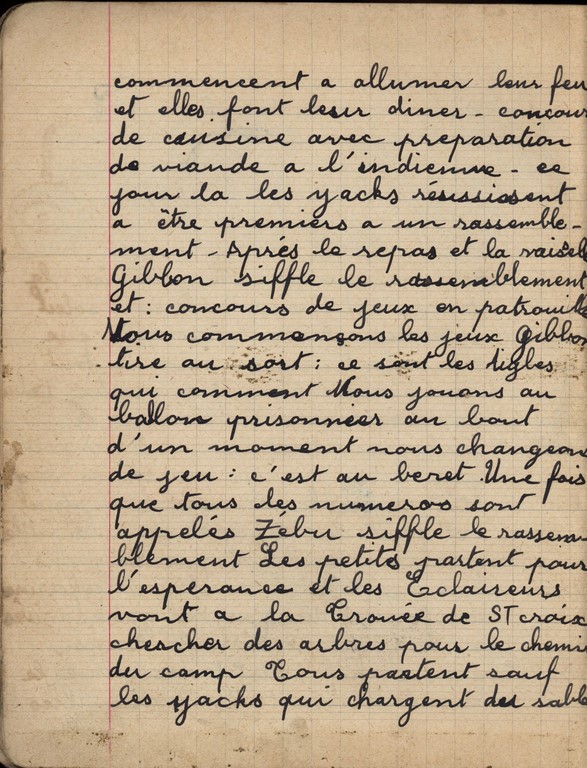 commencent a allumer leur feu
et elles font leur diner - concour
de cuisine avec preparation
de viande a l'indienne - ce
jour la les yacks réussissent
a être premiers a un rassemble-
ment - Après le repas et la vaisell
Gibbon siffle le rassemblement
et : concours de jeux en patrouille
Nous commençons les jeux Gibbon
tire au sort : ce sont les tigres
qui comment Nous jouons au
ballon prisonnier au bout
d'un moment nous changeons
de jeu : c'est au beret . Une fois
que tous les numeros sont
appelés Zébu siffle le rassem-
blement Les petits partent pour
l'esperance et les Eclaireurs
vont a la Trouée de ST croix
chercher des arbres pour le chemi
du camp Tous partent sauf
les yacks qui chargent du sable